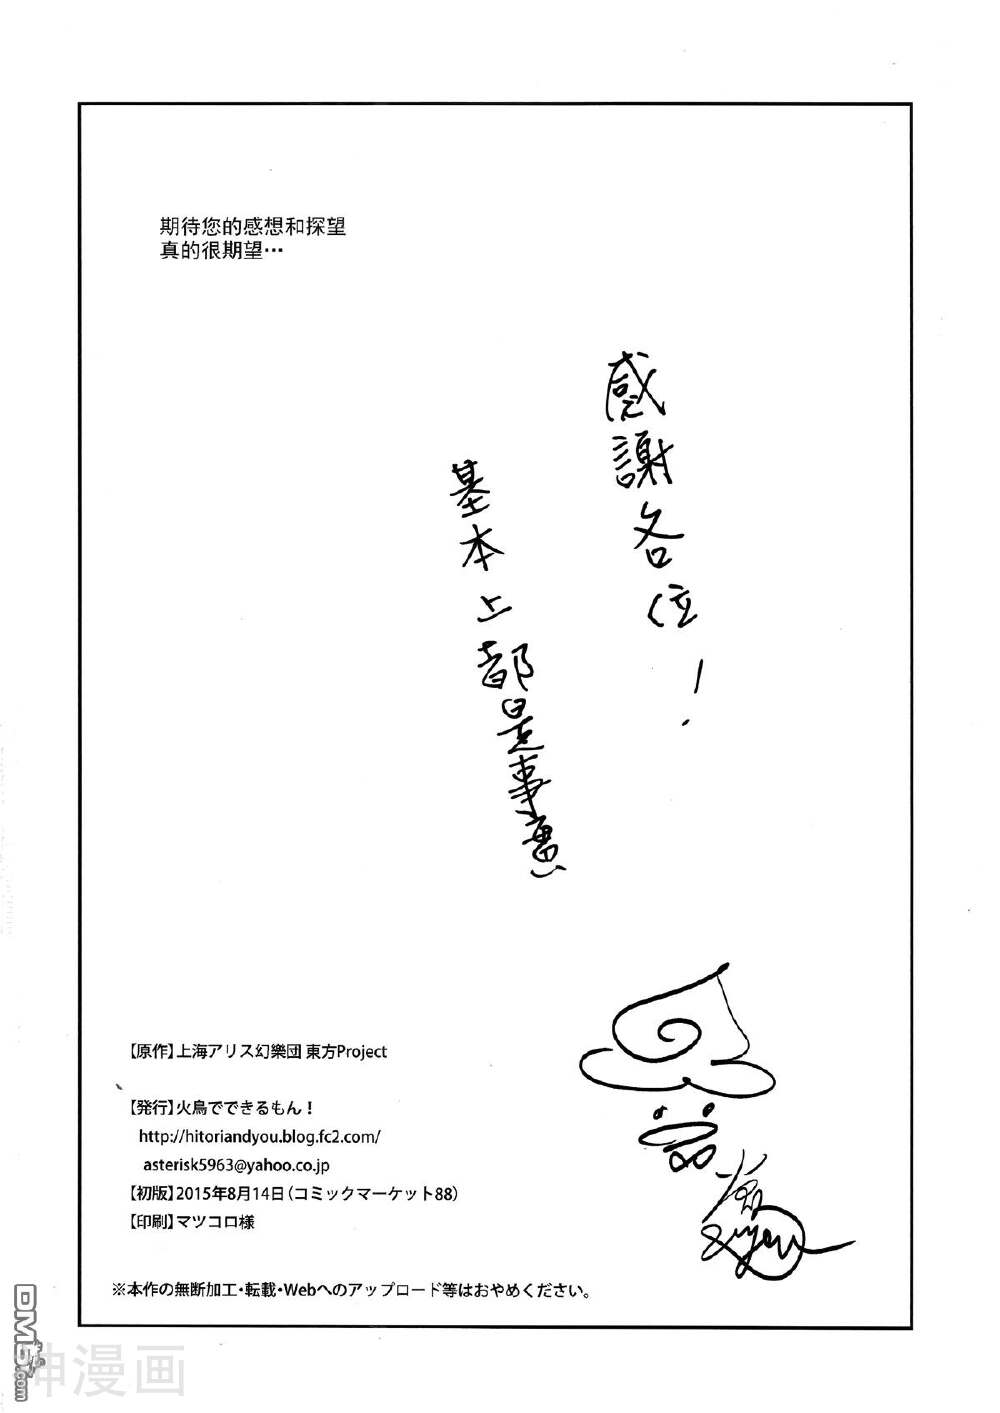 期待您的感想和探望
真的很期望…
感謝各位！
基本上都是事實
【原作】上海アリス幻樂団 東方Project
【発行】火鳥でできるもん！
http://hitoriandyou.blog.fc2.com/
asterisk5963@yahoo.co.jp
【初版】2015年8月14日（コミックマーケット88）
【印刷】マツコロ様
※本作の無断加工・転載・Webへのアップロード等はおやめください。
DM5.com
神漫画